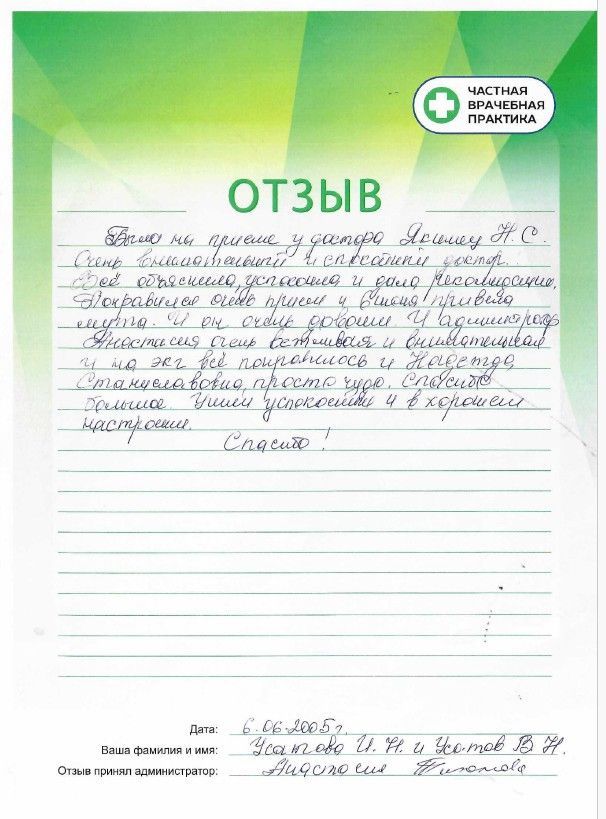 ЧАСТНАЯ
ВРАЧЕБНАЯ
ПРАКТИКА
ОТЗЫВ
Была на приеме у доктора Якимец Н.С.
Очень внимательный и спокойный доктор.
Всё объяснила, успокоила и дала рекомендации.
Понравился очень прием и я привела
мужа. И он очень доволен. И администратор
Анастасия очень вежливая и внимательная
и на экг всё понравилось и Надежда
Станиславовна, просто чудо. Спасибо
большое. Ушли успокоенны и в хорошем
настроении.
Спасибо!
Дата: 6.06.2005г.
Ваша фамилия и имя: Усатова И.Н. и Усатов В Н.
Отзыв принял администратор: Анастасия